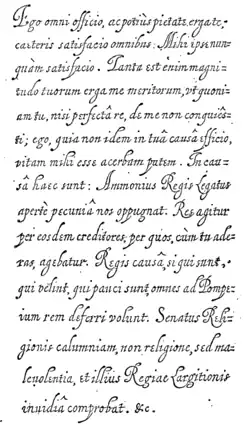 Ego omni officio, ac potius pietate erga te,
caeteris satisfacio omnibus: Mihi ipse nun=
quàm satisfacio. Tanta est enim magni=
tudo tuorum erga me meritorum, vt quoni=
am tu, nisi perfectâ re, de me non conquiês=
ti; ego, quia non idem in tuâ causâ efficio,
vitam mihi esse acerbam putem. In cau=
sâ haec sunt: Ammonius Regis Legatus
apertè pecuniâ nos oppugnat. Res agitur
per eosdem creditores, per quos, cùm tu ade=
ras, agebatur. Regis causâ, si qui sunt,
qui velint, qui pauci sunt, omnes ad Pompe=
ium rem deferri volunt. Senatus Reli=
gionis calumniam, non religione, sed ma=
leuolentia, et illius Regiae Largitionis
inuidiâ comprobat. &c.